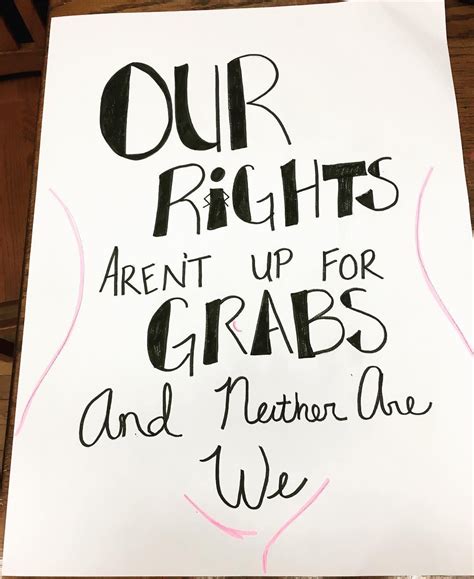 OUR
RiGHTS
AREN'T UP FOR
GRABS
And Neither Are
We